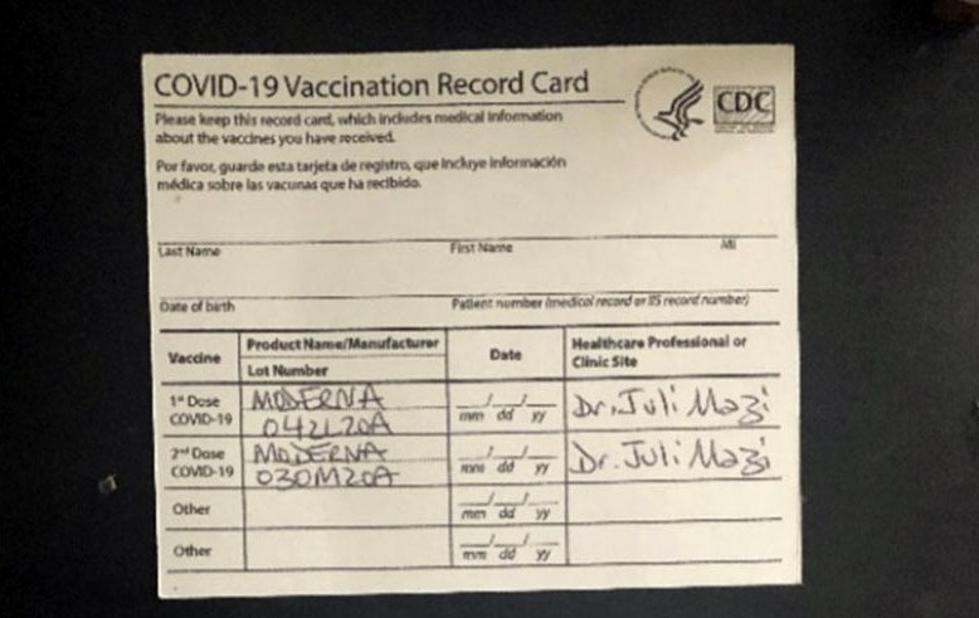 COVID-19 Vaccination Record Card
CDC
Please keep this record card, which includes medical information
about the vaccines you have received.
Por favor, guarde esta tarjeta de registro, que incluye información
médica sobre las vacunas que ha recibido.
Last Name First Name MI
Date of birth Patient number (medical record or IIS record number)
Vaccine Product Name/Manufacturer Date Healthcare Professional or
Lot Number Clinic Site
1st Dose MODERNA __/__/__ Dr. Juli Mazi
COVID-19 042L20A mm dd yy
2nd Dose MODERNA __/__/__ Dr. Juli Mazi
COVID-19 030M20A mm dd yy
Other __/__/__
mm dd yy
Other __/__/__
mm dd yy